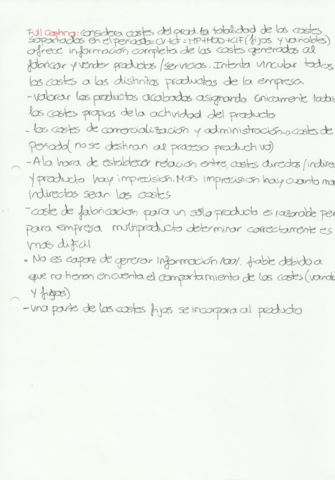 Full Costing: considera costes del prod. la totalidad de los costes
soportados en el periodo: CV+cf=MP+MOD+GIF (fijos y variables)
ofrece información completa de los costes generados al
fabricar y vender productos/servicios. Intenta vincular todos
los costes a los distintos productos de la empresa
-valorar los productos acabados asignando únicamente todos
los costes propios de la actividad del producto
- los costes de comercialización y administración → costes de
periodo (no se destinan al proceso productivo)
-A la hora de establecer relación entre costes directos/indirec
y producto hay imprecisión. Mas imprecisión hay cuanto mas
indirectos sean los costes
-coste de fabricación para un sólo producto es razonable pero
para empresa multiproducto determinar correctamente es
más difícil
• No es capaz de generar información 100% fiable debido a
que no tienen en cuenta el comportamiento de los costes (variables
y fijos)
-una parte de los costes fijos se incorpora al producto